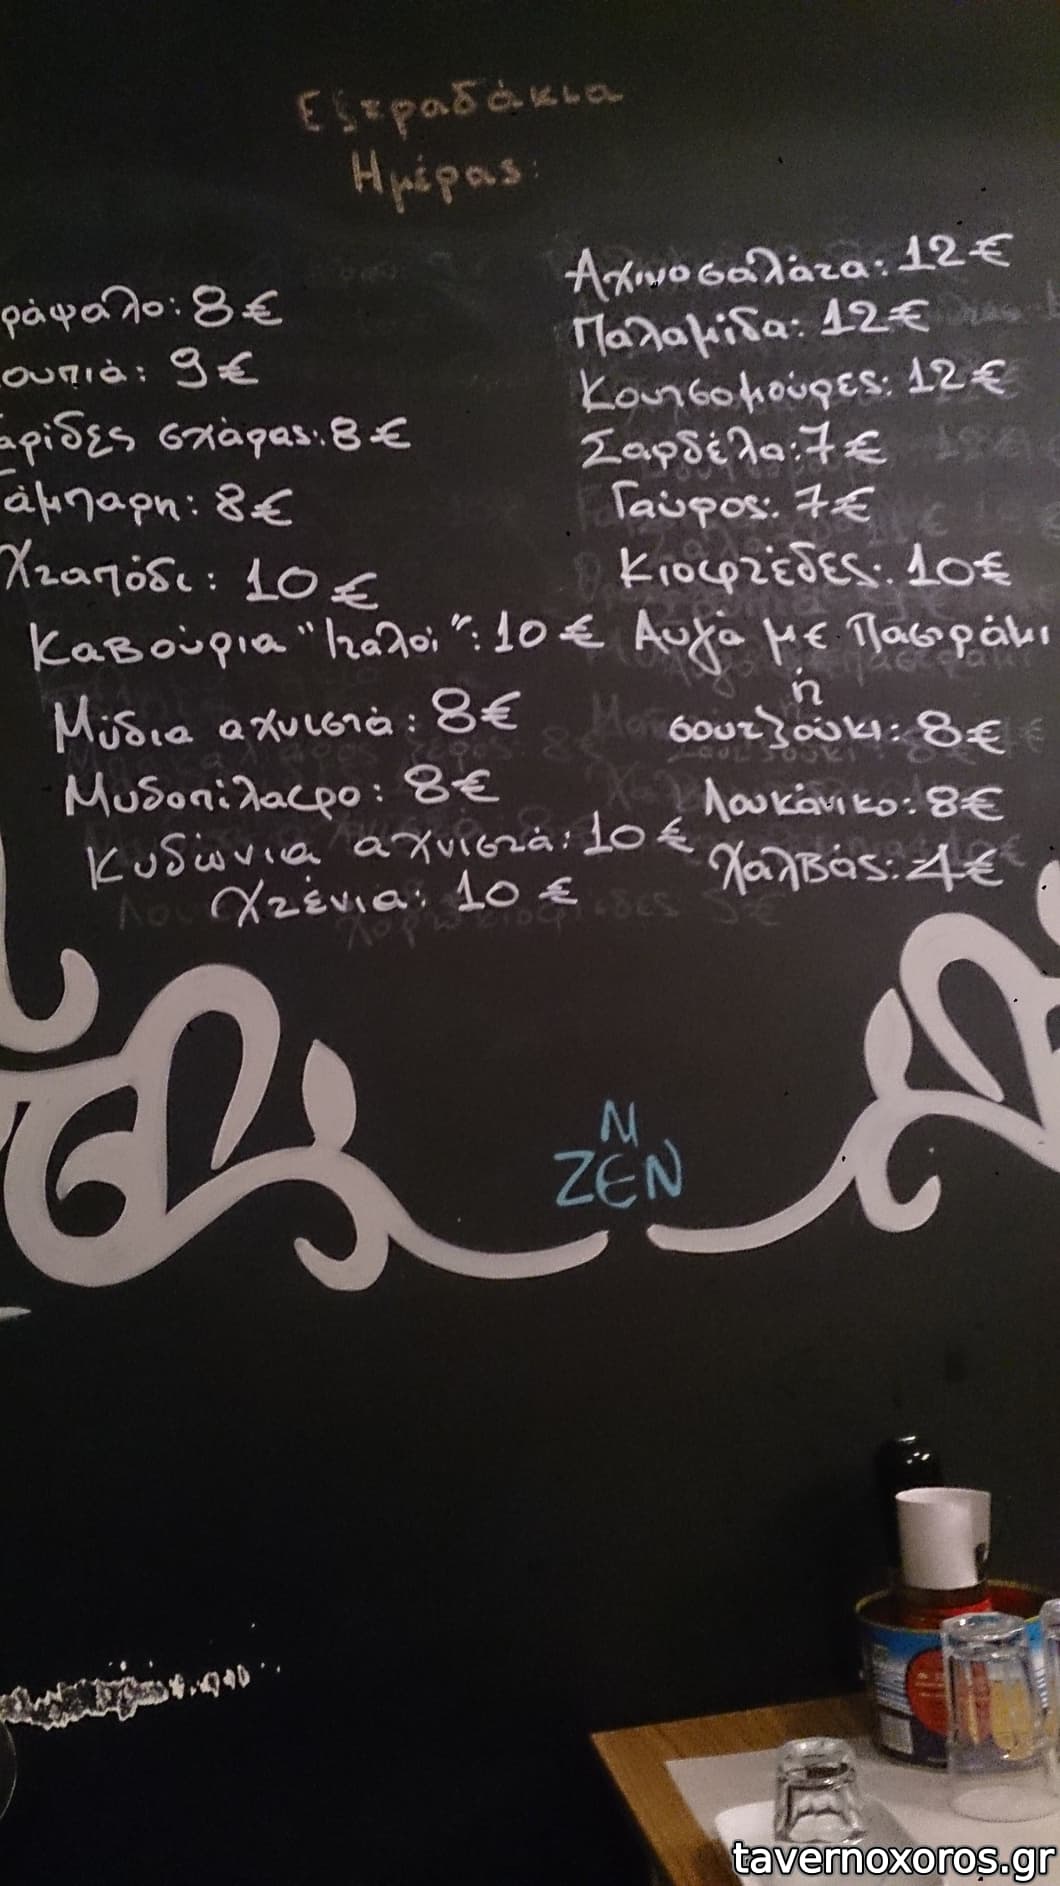 Εξτραδάκια
Ημέρας:
ράψαλο: 8€
ουπιά: 9€
αρίδες σχάρας: 8€
άμπαρη: 8€
Χταπόδι: 10€
Καβούρια "Ιταλοί": 10€
Μύδια αχνιστά: 8€
Μυδοπίλαφο: 8€
Κυδώνια αχνιστά: 10€
Χτένια: 10€
Αχινοσαλάτα: 12€
Παλαμίδα: 12€
Κουτσομούρες: 12€
Σαρδέλα: 7€
Γαύρος: 7€
Κιοφτέδες: 10€
Αυγά με Παστράμι
ή
σουτζούκι: 8€
Λουκάνικο: 8€
Χαλβάς: 4€
M
ZEN
tavernoxoros.gr